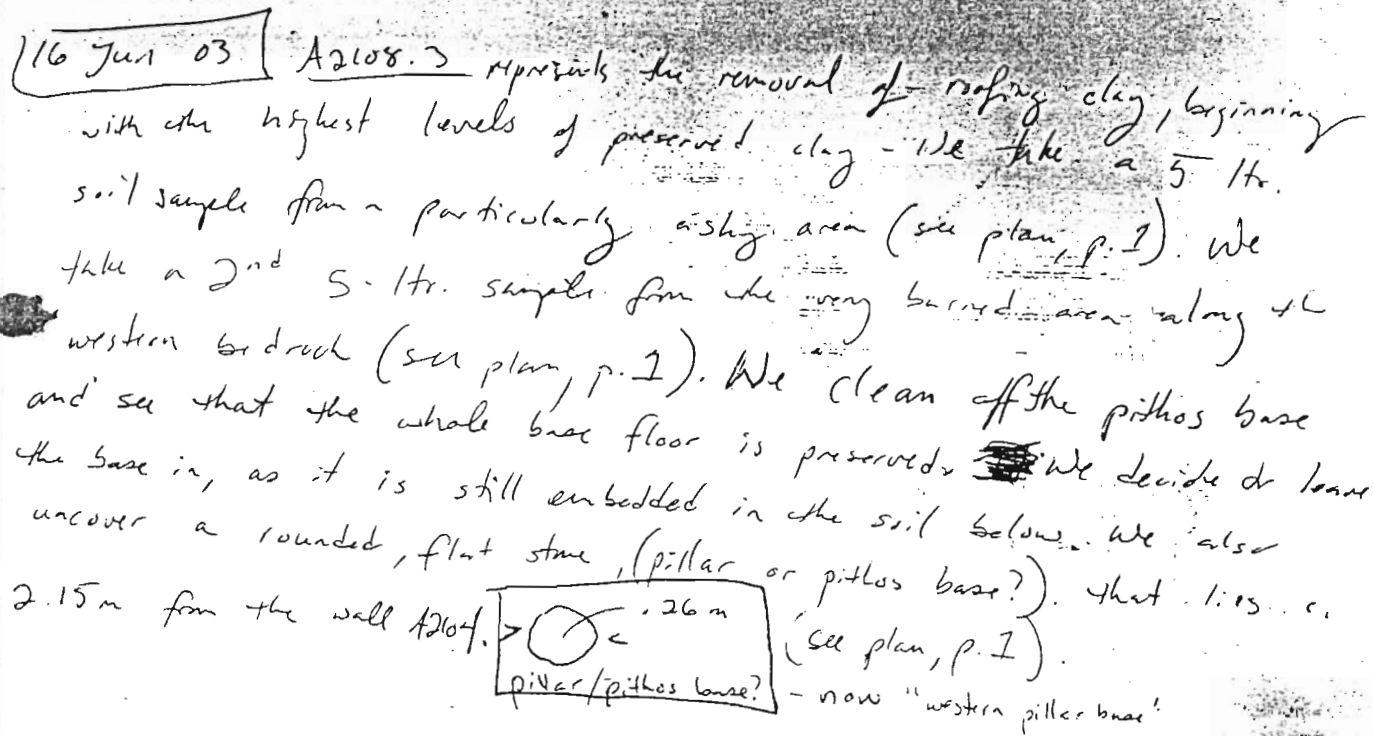 16 Jun 03 A2108.3 represents the removal of roofing clay, beginning
with the highest levels of preserved clay - We take a 5 ltr.
soil sample from a particularly ashy area (see plan, p. 1). We
take a 2nd 5-ltr. sample from the very burned area along the
western bedrock (see plan, p. 1). We clean off the pithos base
and see that the whole base floor is preserved. We decide to leave
the base in, as it is still embedded in the soil below. We also
uncover a rounded, flat stone, (pillar or pithos base?). that lies c.
2.15 m from the wall A2104. .26 m (see plan, p. 1).
pillar/pithos base? - now "western pillar base"